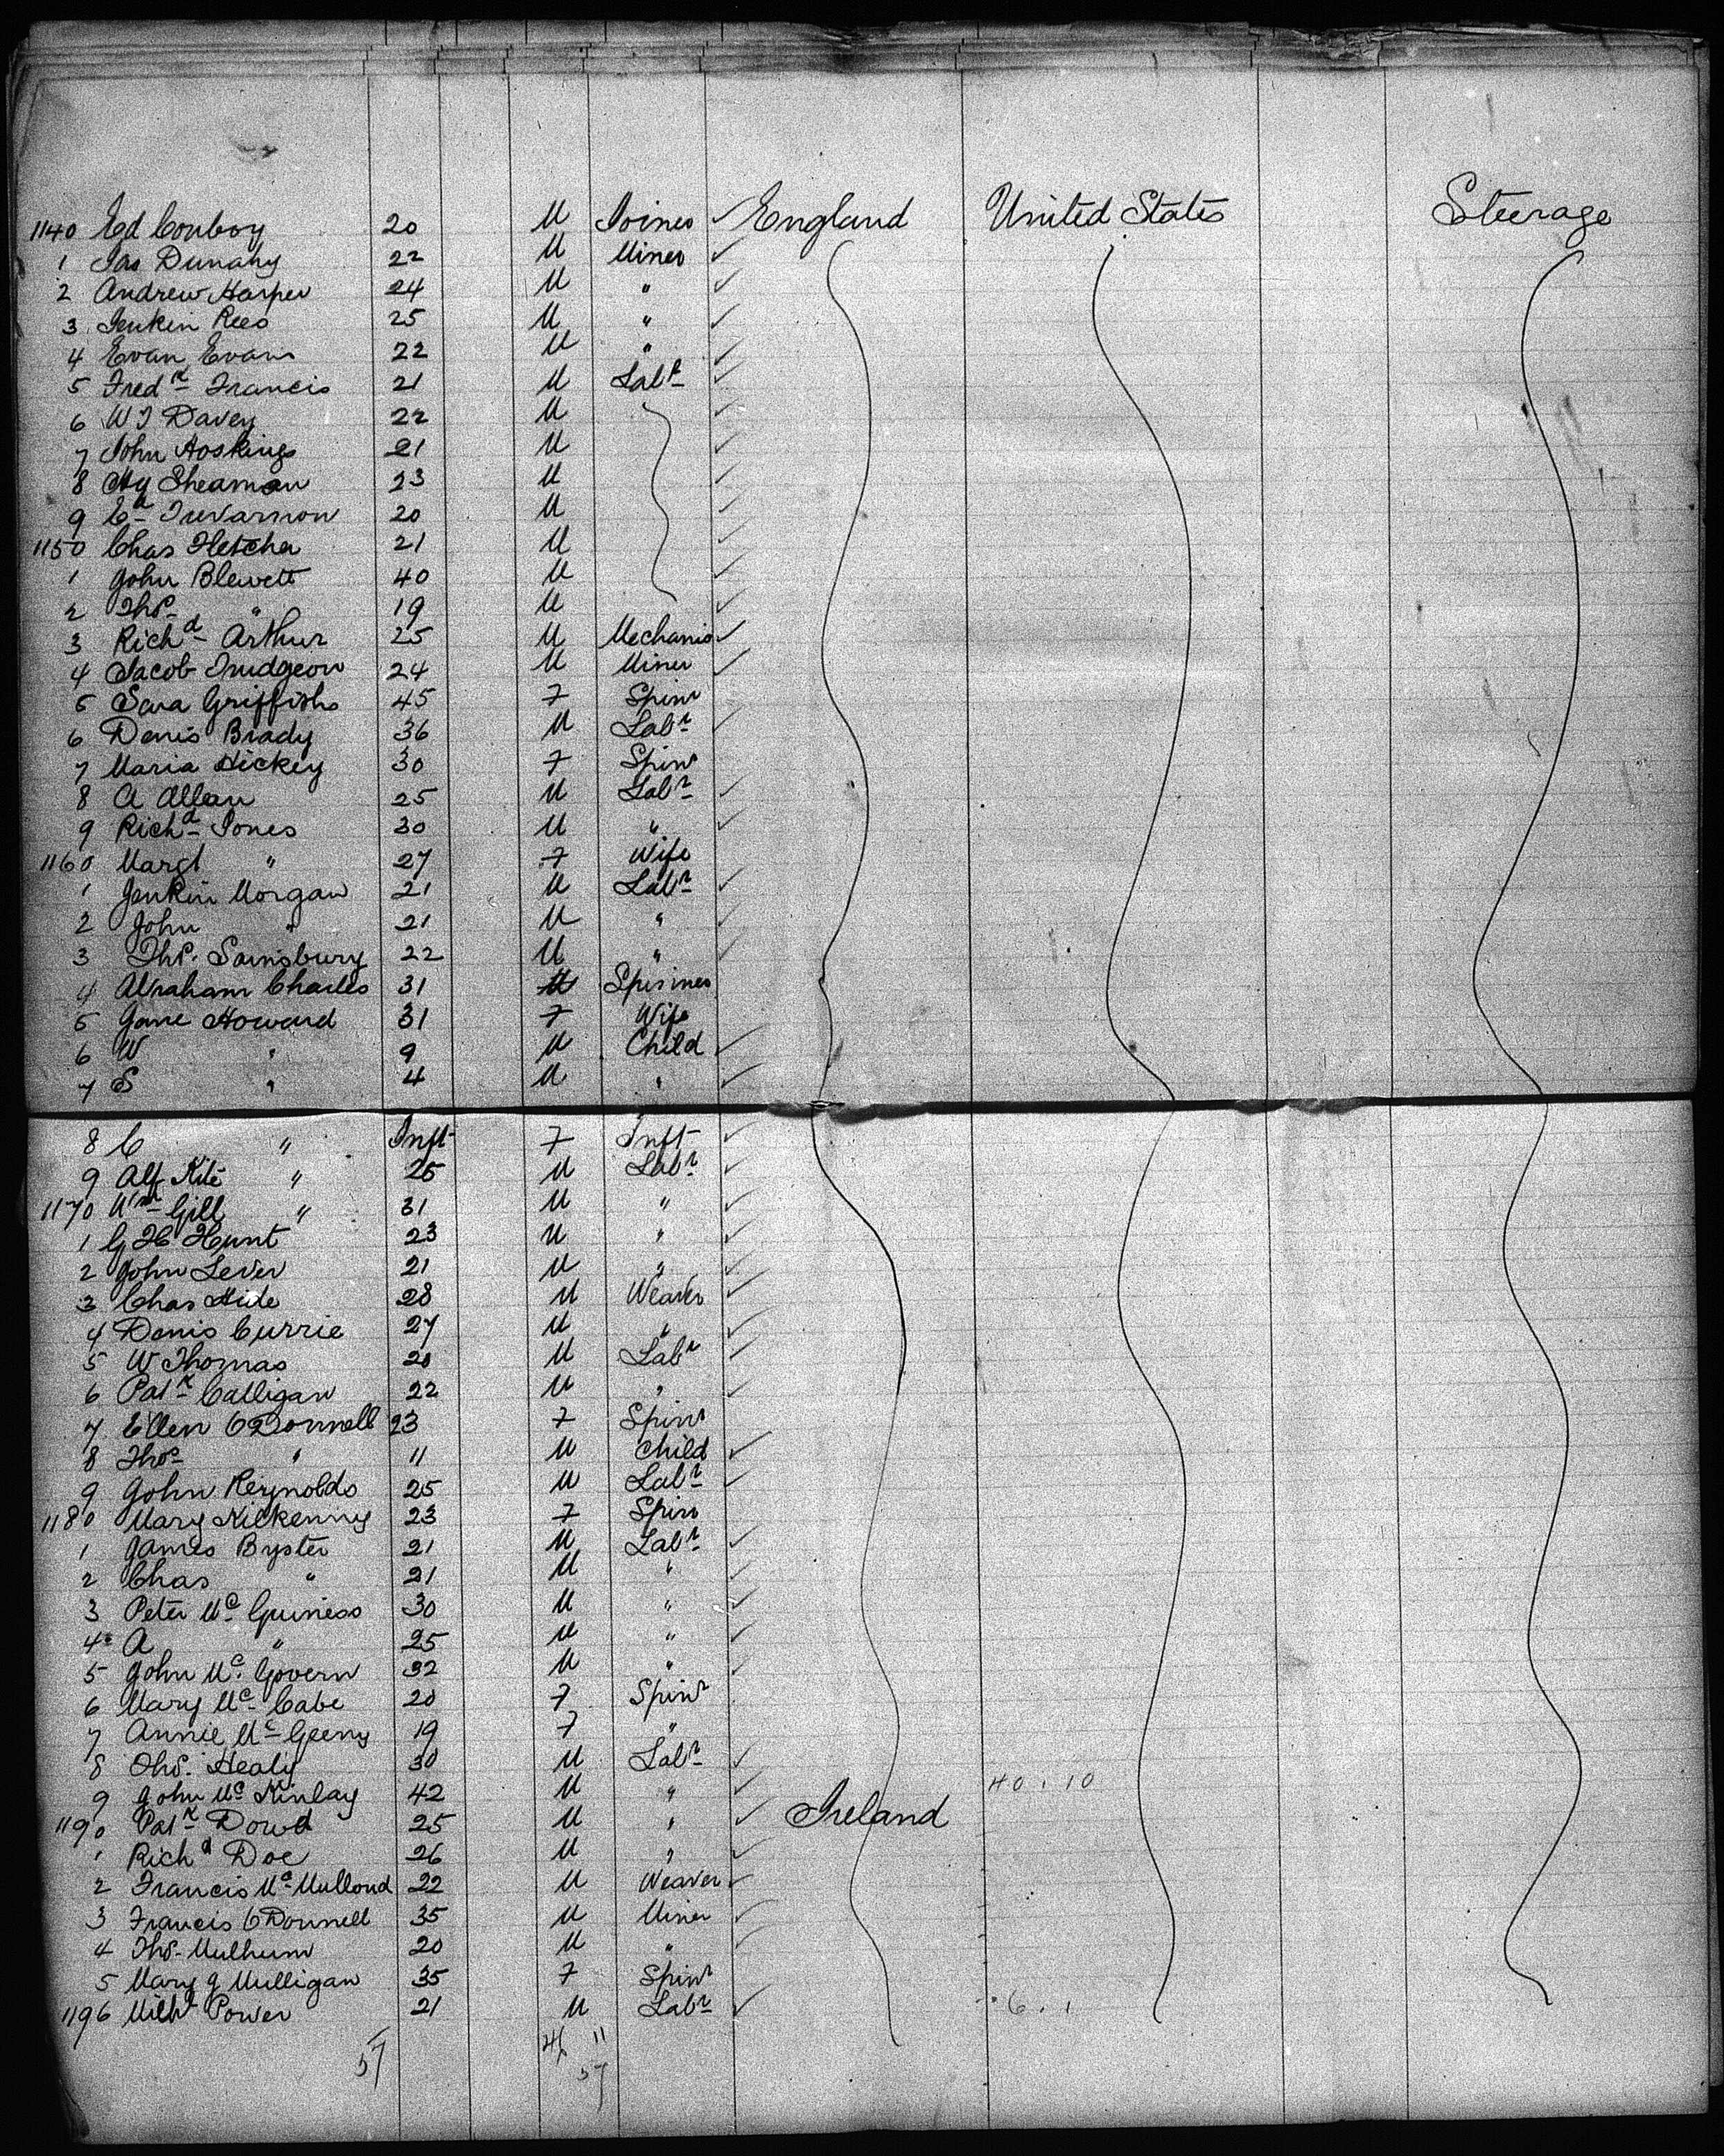 1140 Ed Conboy 20 M Joiner ✓ England United States Steerage
1 Jas Dunahy 22 M Miner ✓
2 Andrew Harper 24 M " ✓
3 Jenkin Rees 25 M " ✓
4 Evan Evans 22 M " ✓
5 Fredk Francis 21 M Labr ✓
6 W J Davey 22 M ✓
7 John Hoskings 21 M ✓
8 Hy Sheaman 23 M ✓
9 Ed Trevarrron 20 M ✓
1150 Chas Fletcher 21 M ✓
1 John Blewett 40 M ✓
2 Thos " 19 M ✓
3 Richd Arthur 25 M Mechanic ✓
4 Jacob Trudgeon 24 M Miner ✓
5 Sara Griffiths 45 F Spinr
6 Denis Brady 36 M Labr ✓
7 Maria Hickey 30 F Spinr
8 A Allan 25 M Labr ✓
9 Richd Jones 30 M " ✓
1160 Margt " 27 F Wife
1 Jenkin Morgan 21 M Labr ✓
2 John " 21 M " ✓
3 Thos. Sainsbury 22 M " ✓
4 Abraham Charles 31 M
5 Jane Howard 31 F Wife
6 W " 9 M Child ✓
7 S " 4 M " ✓
8 C " Inft F Inft ✓
9 Alf Kite " 25 M Labr ✓
1170 Wm Gill " 31 M " ✓
1 G H Hunt 23 M " ✓
2 John Lever 21 M " ✓
3 Chas Hide 28 M Weaver ✓
4 Denis Currie 27 M " ✓
5 W Thomas 20 M Labr ✓
6 Patk Calligan 22 M " ✓
7 Ellen O'Donnell 23 F Spinr
8 Thos " 11 M Child ✓
9 John Reynolds 25 M Labr ✓
1180 Mary Kilkenny 23 F Spinr
1 James Byster 21 M Labr ✓
2 Chas " 21 M " ✓
3 Peter Mc Guiness 30 M " ✓
4 A " 25 M " ✓
5 John Mc Govern 32 M " ✓
6 Mary Mc Cabe 20 F Spinr
7 Annie Mc Geeny 19 F "
8 Thos. Healy 30 M Labr ✓
9 John Mc Kinlay 42 M " ✓ 40.10
1190 Patk Dowd 25 M " ✓ Ireland
1 Richd Doe 26 M " ✓
2 Francis Mc Mullond 22 M Weaver ✓
3 Francis O'Donnell 35 M Miner ✓
4 Thos Mulhum 20 M " ✓
5 Mary J Mulligan 35 F Spinr
1196 Power 21 M Labr ✓ 6.1
57 46 11
57